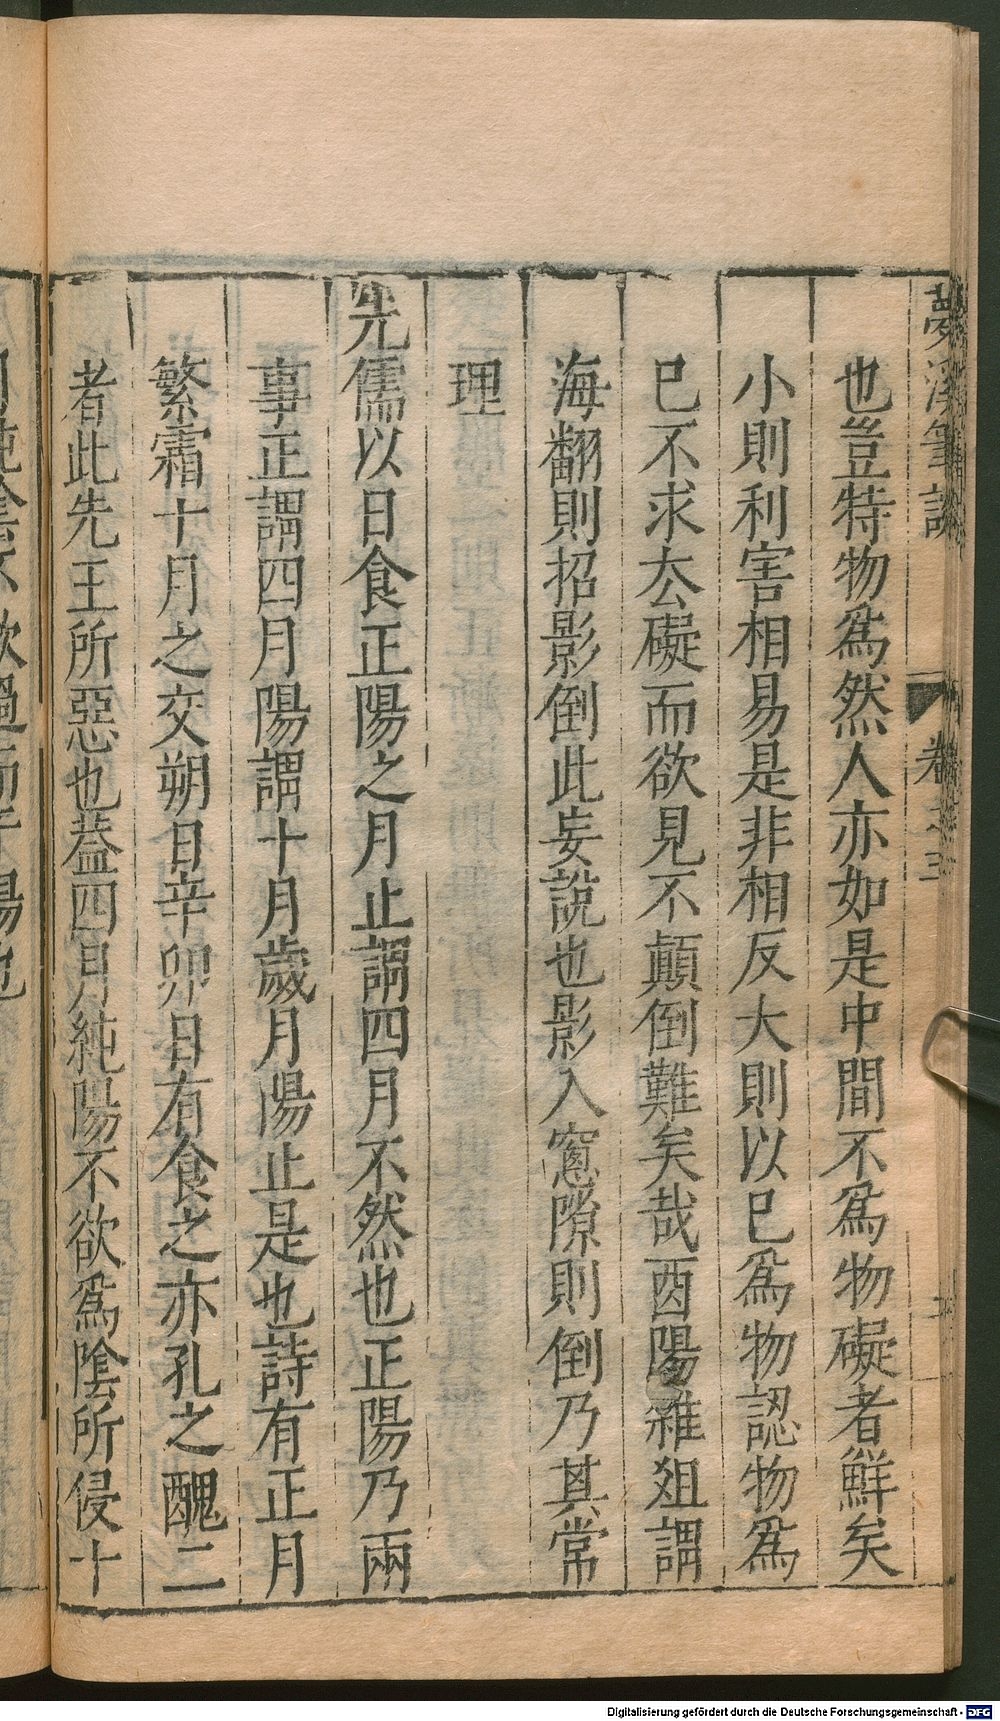 夢溪筆談 卷之三
也豈特物爲然人亦如是中間不爲物礙者鮮矣
小則利害相易是非相反大則以已爲物認物爲
已不求厺礙而欲見不顛倒難矣哉酉陽雜爼謂
海翻則招影倒此妄說也影入窻隙則倒乃其常
理
先儒以日食正陽之月止謂四月不然也正陽乃兩
事正謂四月陽謂十月歲月陽止是也詩有正月
繁霜十月之交朔日辛卯日有食之亦孔之醜二
者此先王所惡也葢四月純陽不欲爲陰所侵十
Digitalisierung gefördert durch die Deutsche Forschungsgemeinschaft - DFG